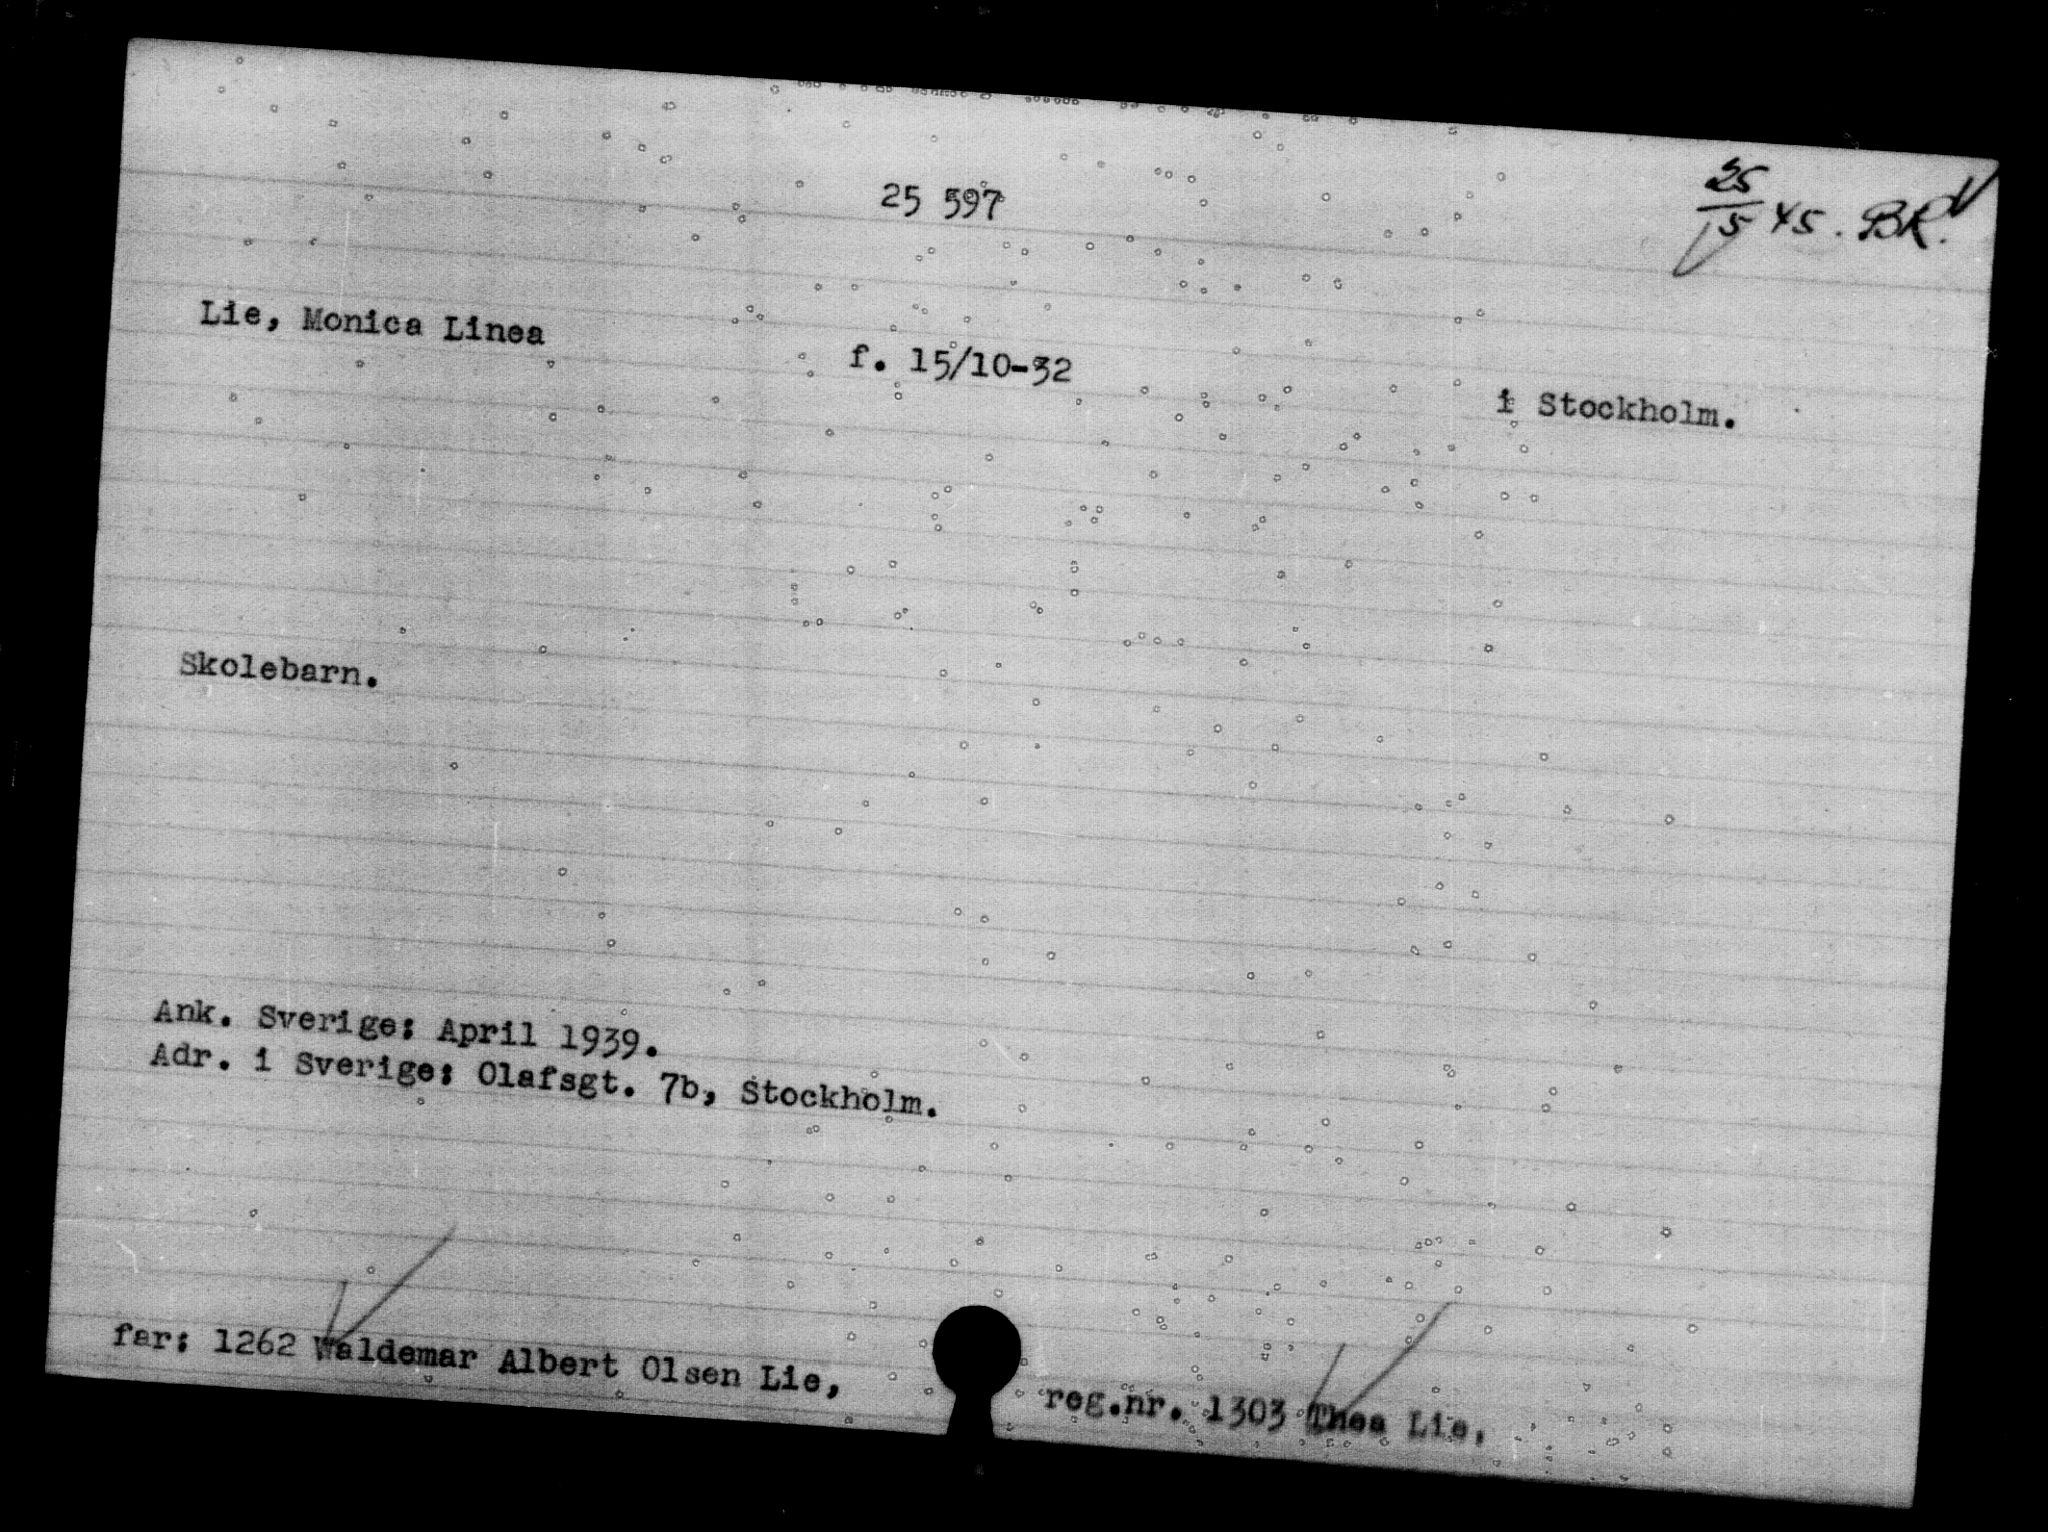 25 597
25/5 45. BR.
Lie, Monica Linea f. 15/10-32 i Stockholm.
Skolebarn.
Ank. Sverige: April 1939.
Adr. i Sverige: Olafsgt. 7b, Stockholm.
far: 1262 Waldemar Albert Olsen Lie, reg.nr. 1303 Thea Lie.